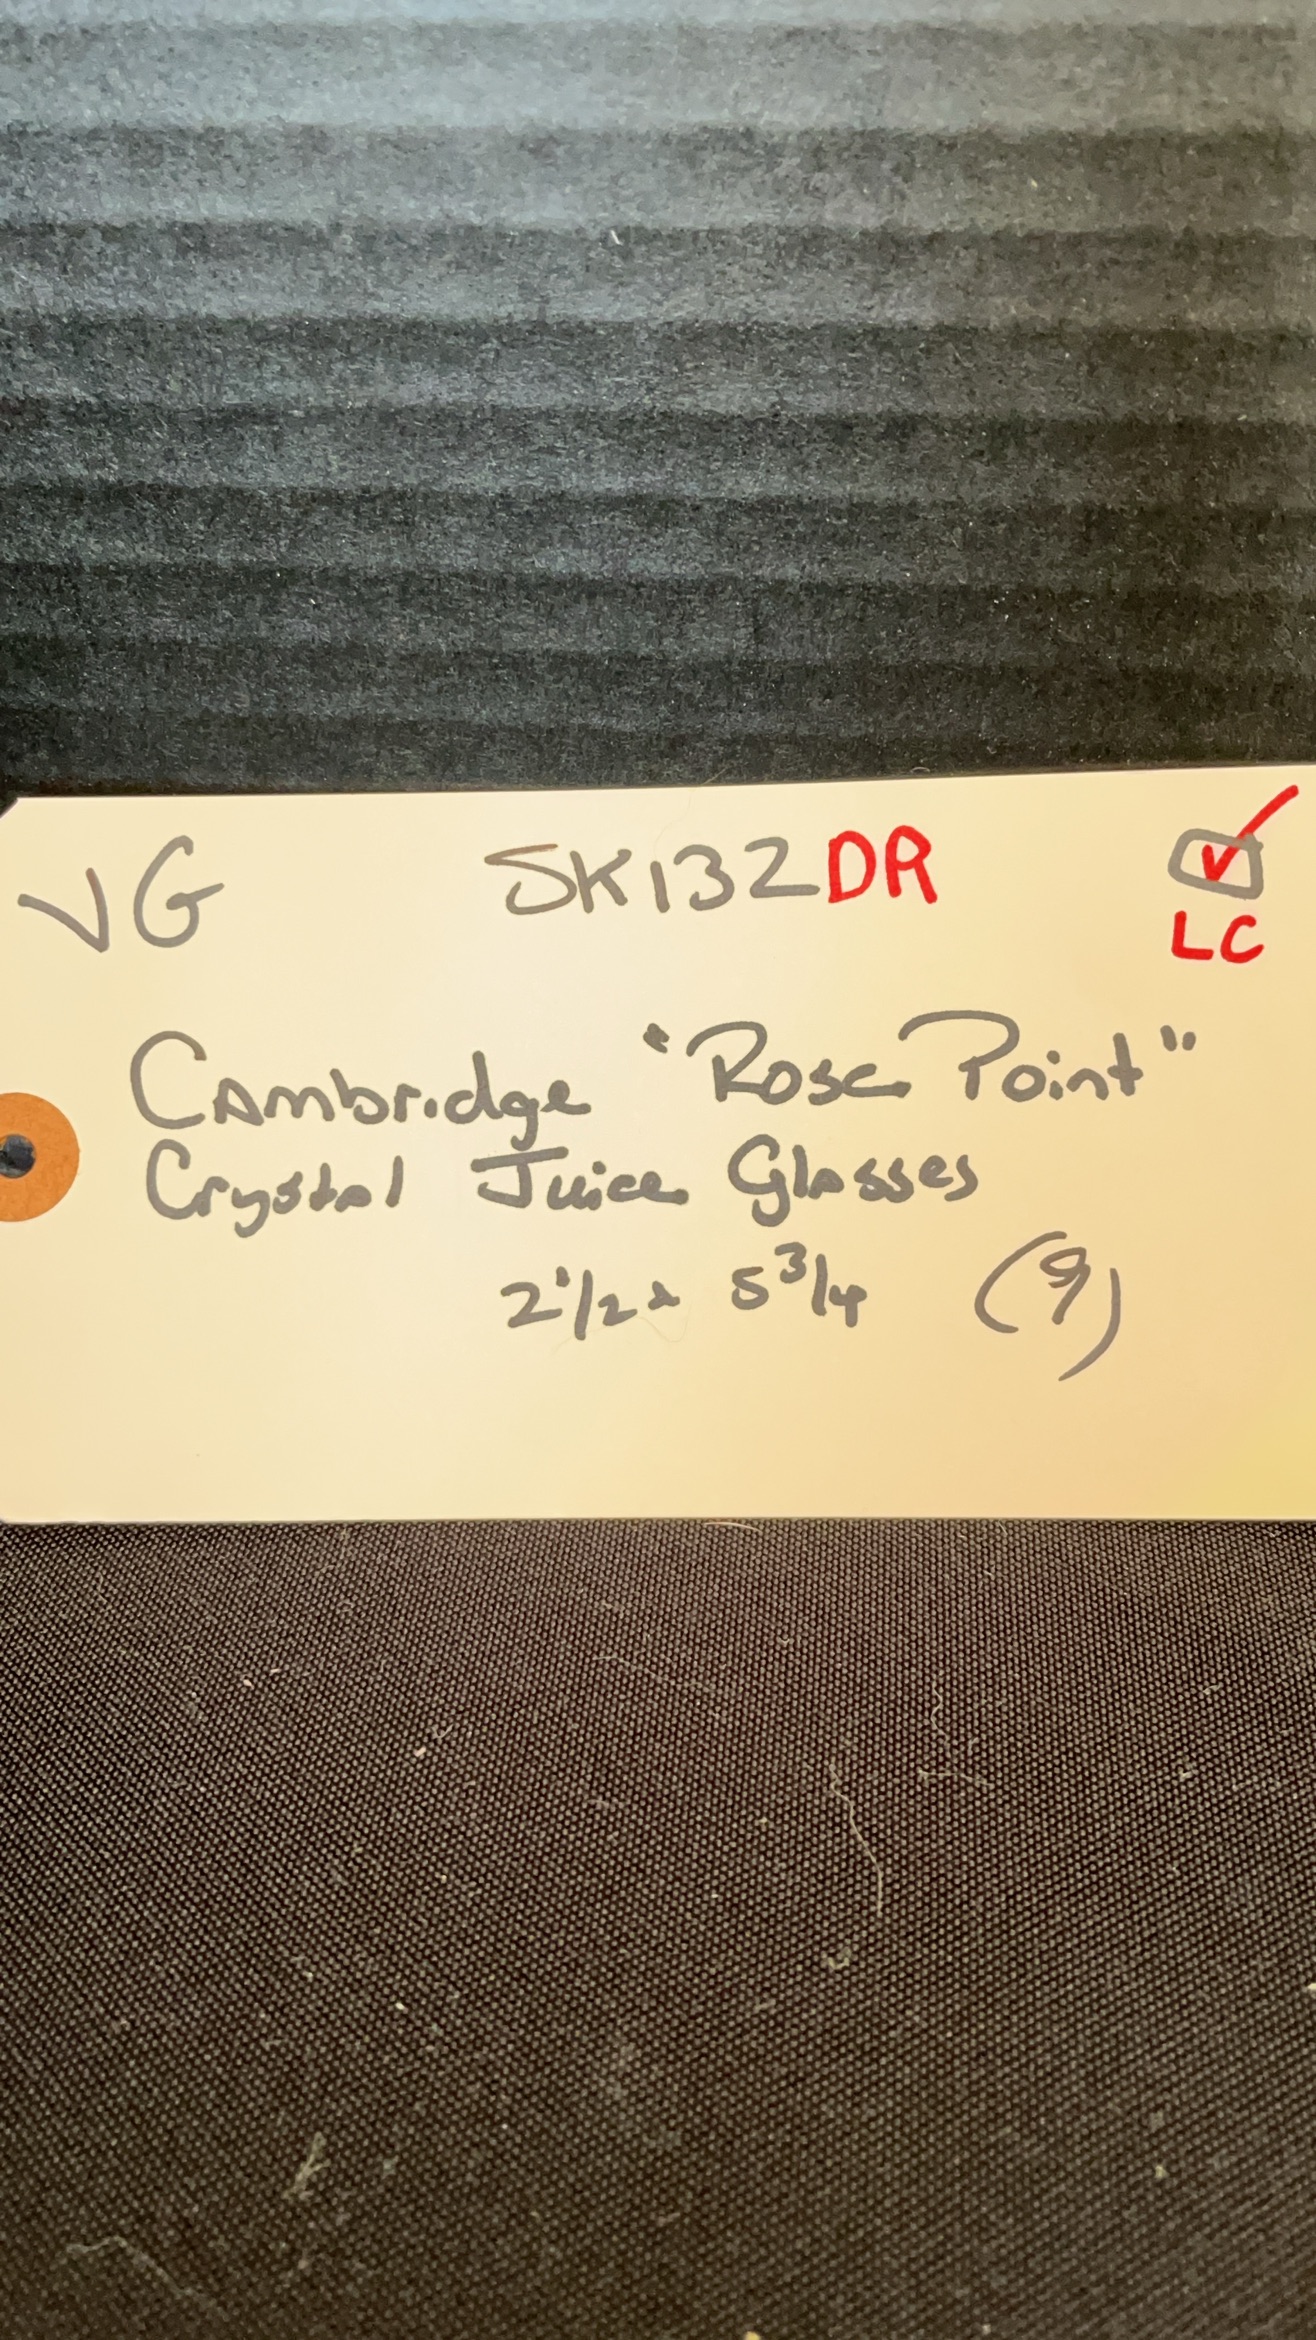 VG SK132DR
LC
Cambridge "Rose Point"
Crystal Juice Glasses
2 1/2 x 5 3/4 (9)